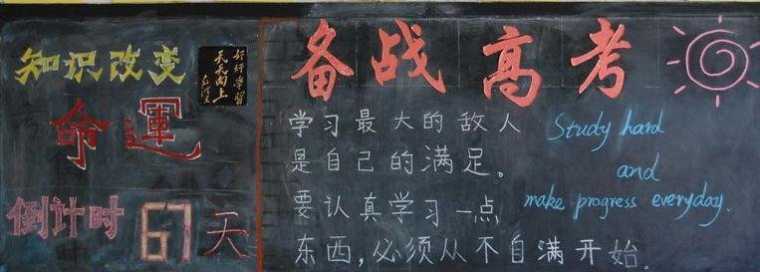 知识改变
命運
好好学习
天天向上
倒计时 67 天
备战高考
学习最大的敌人
是自己的满足。
要认真学习一点
东西,必须从不自满开始.
Study hard
and
make progress everyday.